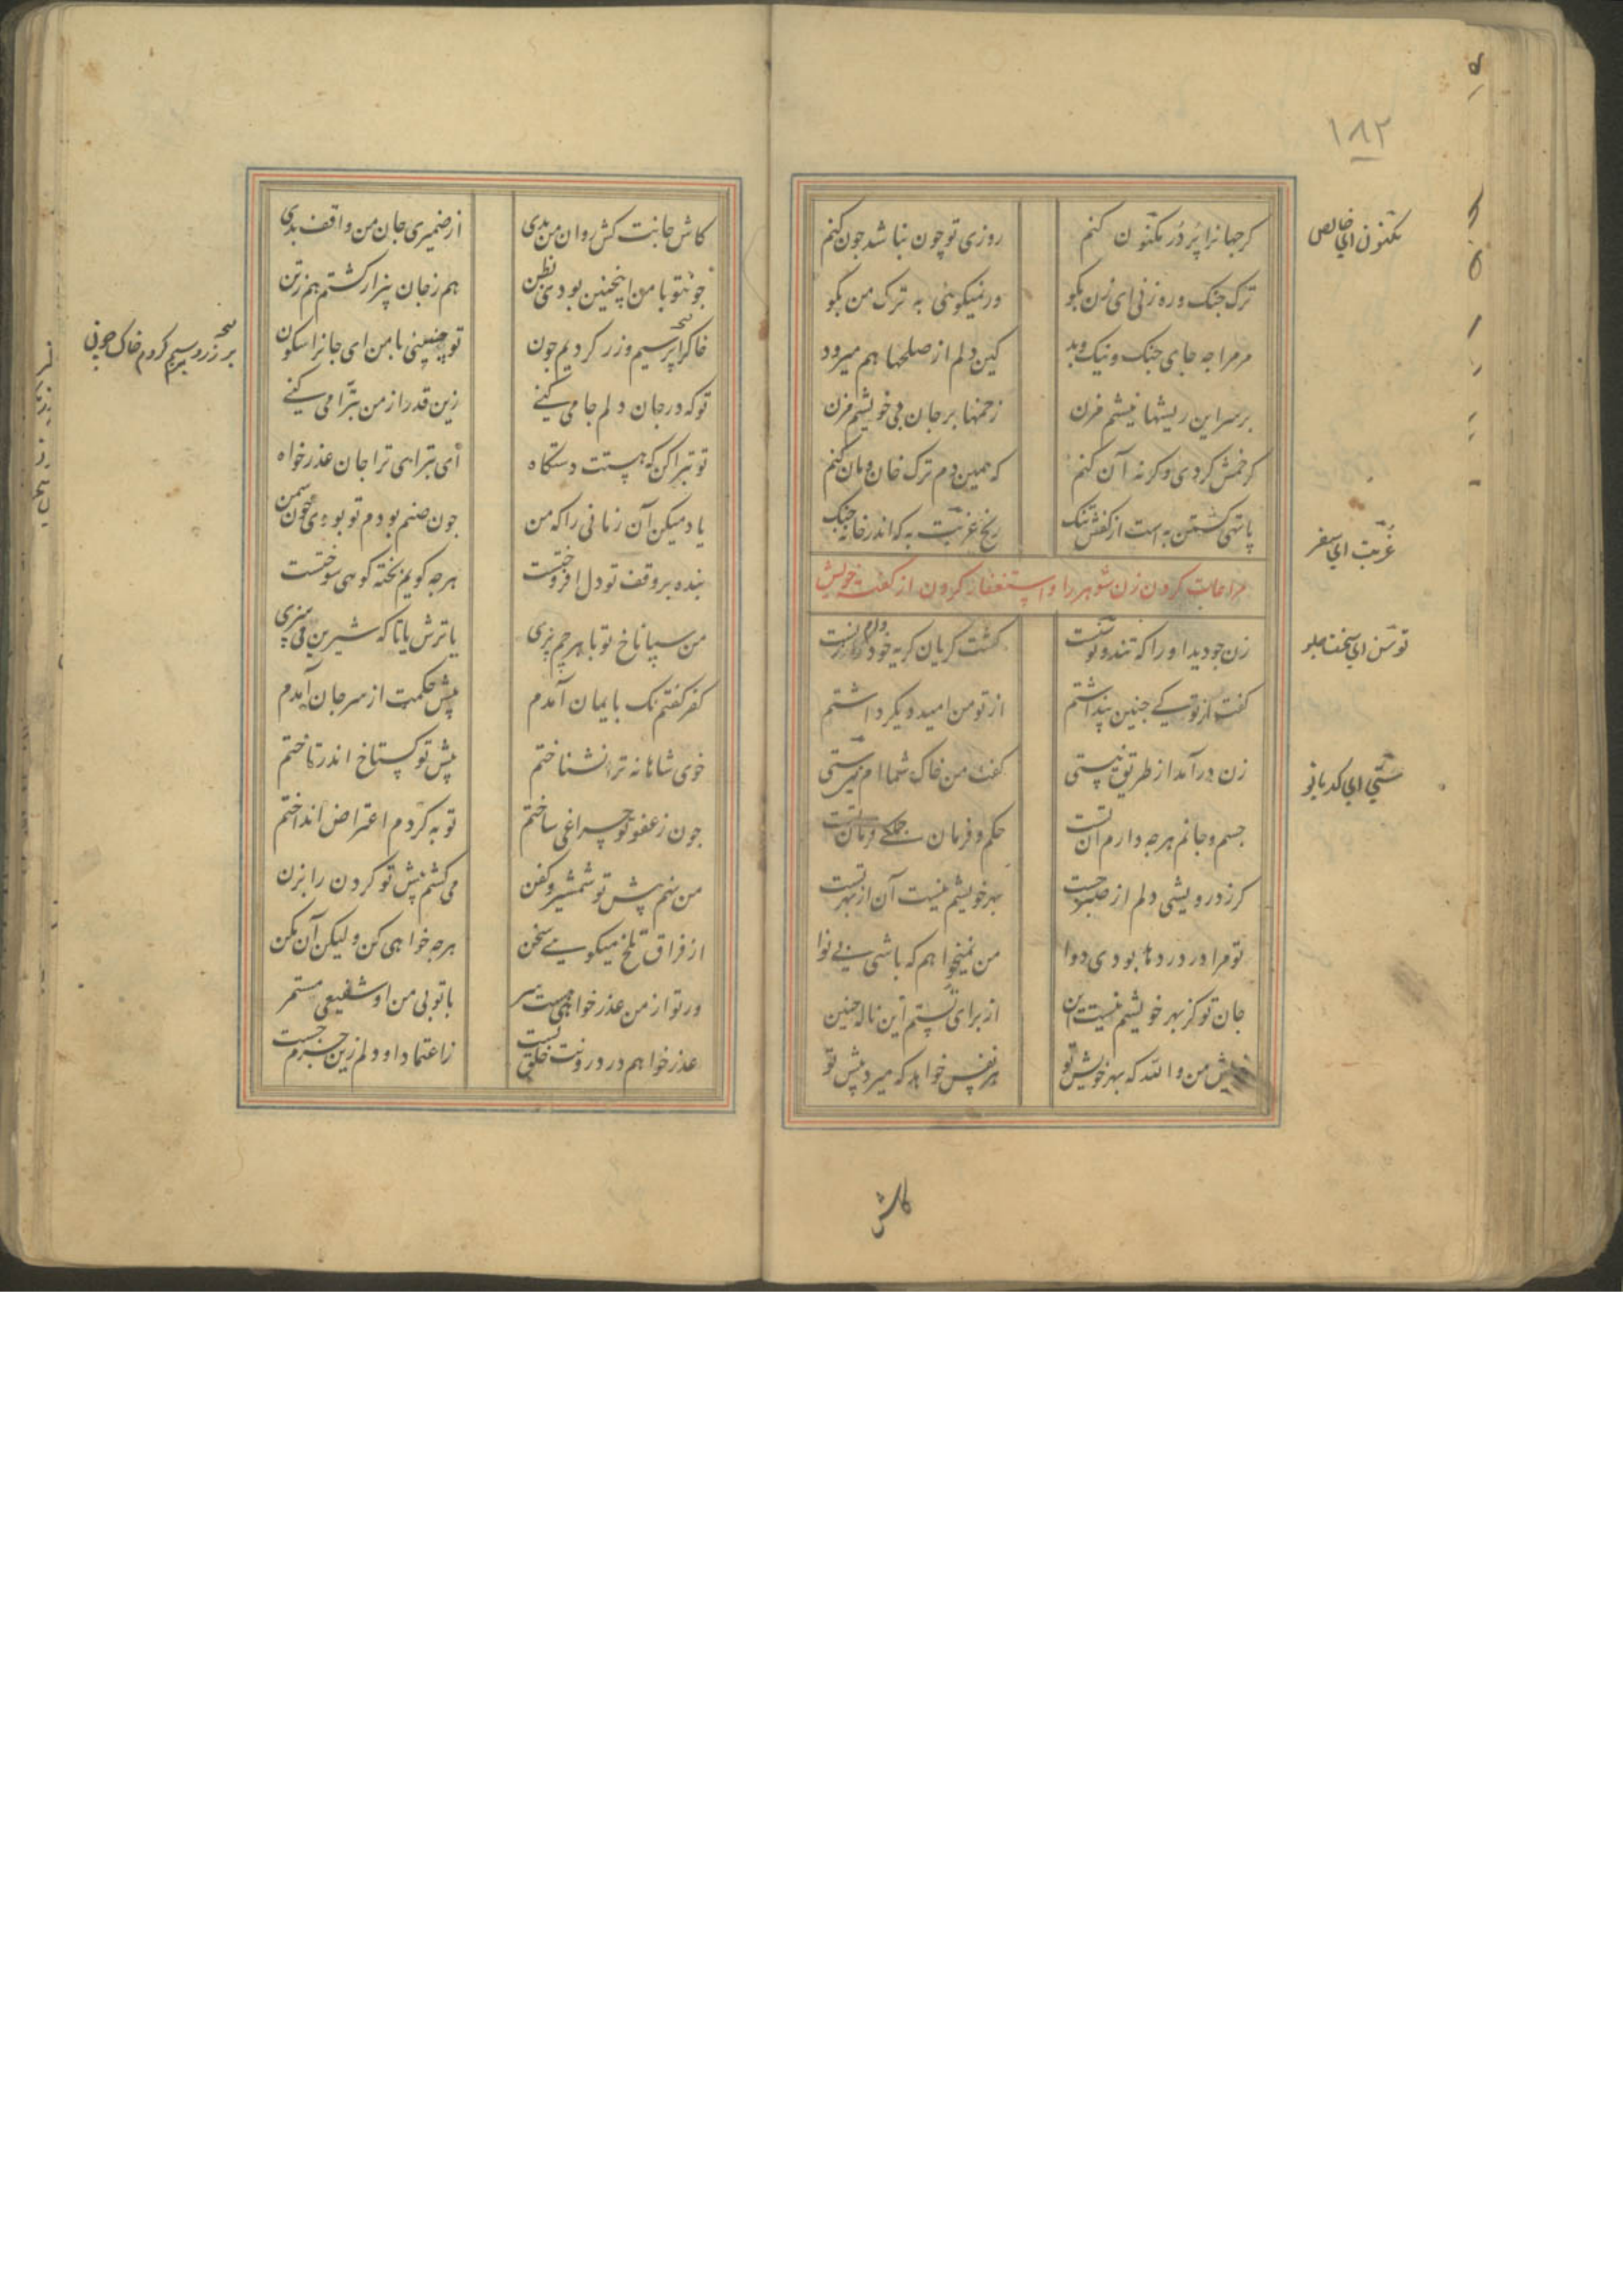 ۱۸۲
کرجهانرا پر در مکنون کنم روزی تو چون نباشد جون کنم
مکنون ای خالص
ترک جنک و ره زنی ای زن بکو ور نمیکوئی به ترک من بکو
مر مرا جه جای جنک و نیک و بد کین دلم از صلحها هم میرود
بر سر این ریشها نیشم مزن زخمها بر جان بی خویشم مزن
کر خمش کردی و کرنه آن کنم که همین دم ترک خان و مان کنم
پا تهی کشتن به است از کفش تنک رنج غربت به که اندر خانه جنک
غربت ای سفر
مراعات کردن زن شوهر را و استغفار کردن از کفته خویش
زن جو دید او را که تند و توسنست کشت کریان کریه خود دام زنست
کفت از تو کی جنین پنداشتم از تو من امید دیکر داشتم
زن درآمد از طریق نیستی کفت من خاک شماام نی ستی
ستی ای کدبانو
جسم و جانم هرجه دارم آن تست حکم و فرمان جملکی فرمان تست
کر ز درویشی دلم از صبر جست بهر خویشم نیست آن از بهر تست
تو مرا در دردها بودی دوا من نمیخواهم که باشی بی نوا
جان تو کز بهر خویشم نیست این از برای تستم این ناله جنین
خویش من والله که بهر خویش تو هر نفس خواهد که میرد پیش تو
کاش
کاش جانت کش روان من بدی از ضمیری جان من واقف بدی
جون تو با من اینچنین بودی بظن هم ز جان بیزار کشتم هم ز تن
خاکرا بر سیم و زر کردیم جون تو چنینی با من ای جانرا سکون
تو که در جان و دلم جا می کنی زین قدر از من تبرا می کنی
تو تبرا کن که هستت دستکاه ای تبرای ترا جان عذرخواه
یاد میکن آن زمانی را که من جون صنم بودم تو بودی جون شمن
بنده بر وفق تو دل افروختست هرجه کویم پخته کوهی سوختست
من سپاناخ تو با هرجم پزی یا ترش با یا که شیرین می سزی
کفر کفتم نک بایمان آمدم پیش حکمت از سر جان آمدم
خوی شاهانه ترا نشناختم پیش تو کستاخ اندر تاختم
جون ز عفو تو چراغی ساختم توبه کردم اعتراض انداختم
من نهم پیش تو شمشیر و کفن می کشم پیش تو کردن را بزن
از فراق تلخ میکویی سخن هرجه خواهی کن ولیکن آن مکن
در تو از من عذرخواهی هست سر با تو بی من او شفیعی مستمر
عذرخواهم در درونت خلق تست ز اعتماد او دلم زین جرم جست